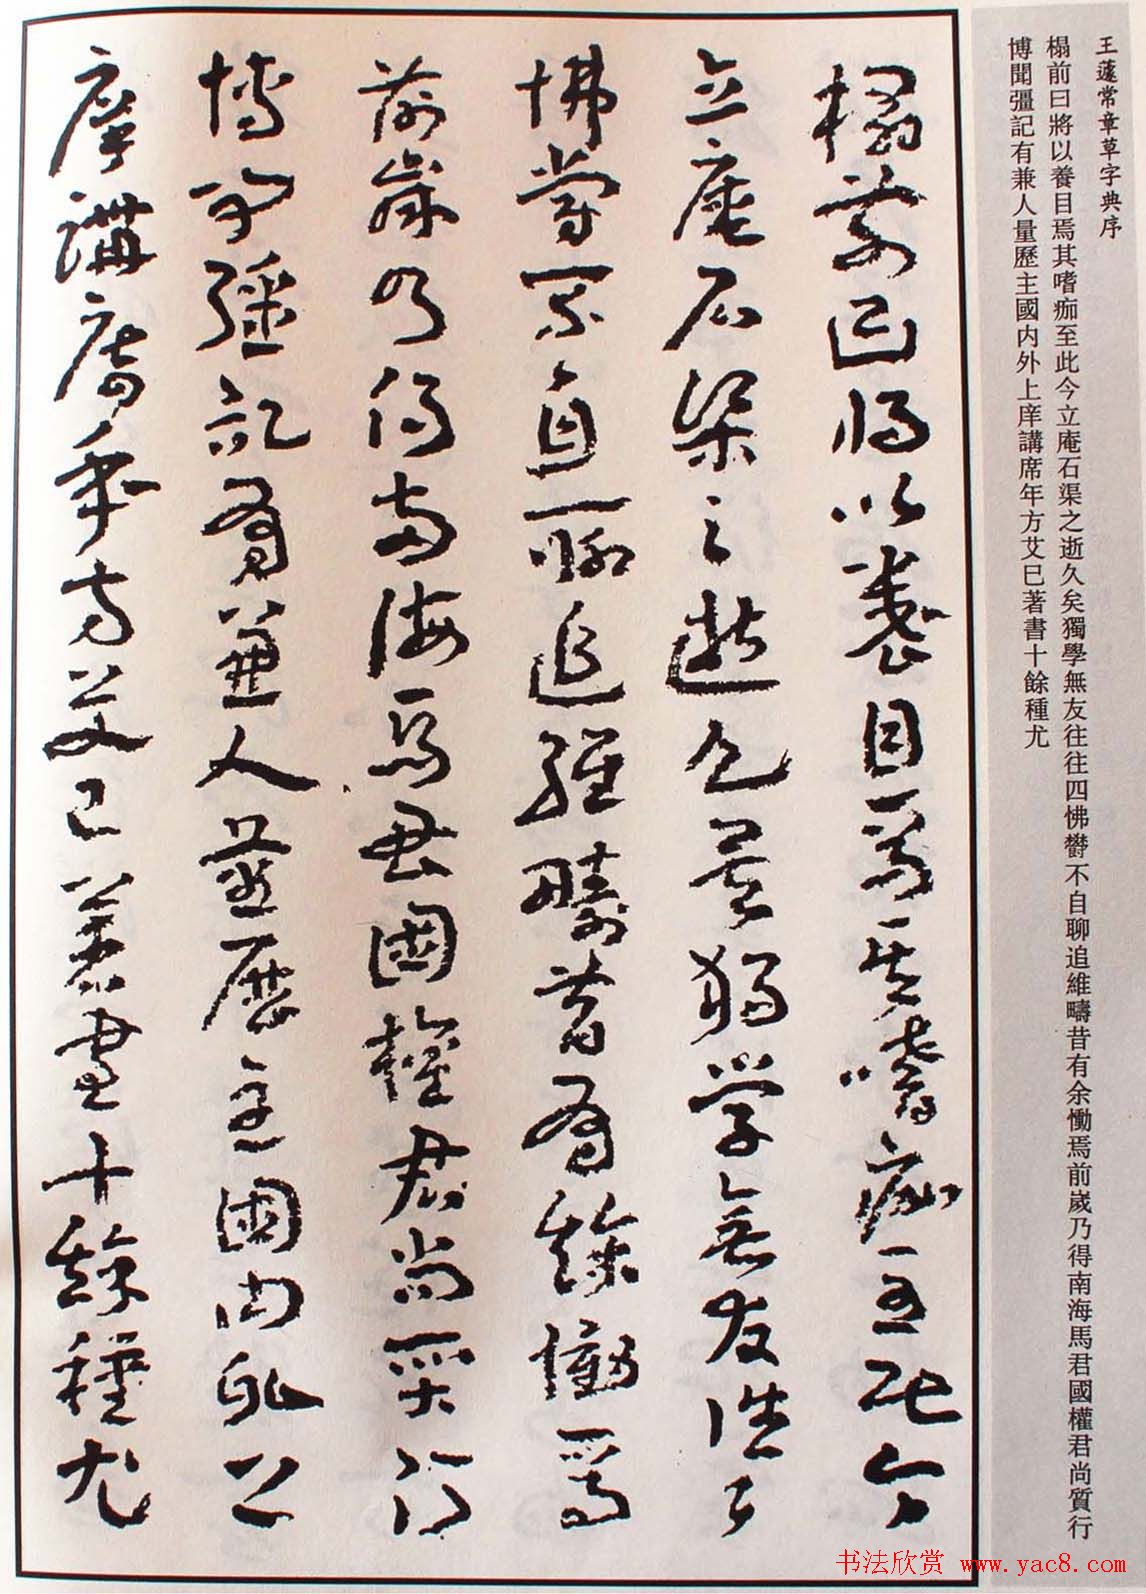 王蘧常章草字典序
榻前曰將以養目焉其嗜痂至此今立庵石渠之逝久矣獨學無友往往四怫欝不自聊追維疇昔有余慟焉前歲乃得南海馬君國權君尚質行
博聞彊記有兼人量歷主國内外上庠講席年方艾巳著書十餘種尤
榻前曰將以養目焉其嗜痂至此今
立庵石渠之逝久矣獨學無友往〻
怫欝不自聊追維疇昔有餘慟焉
前歲乃得南海馬君國權君尚質行
博聞彊記有兼人量歷主國内外上
庠講席年方艾已著書十餘種尤
书法欣赏 www.yac8.com